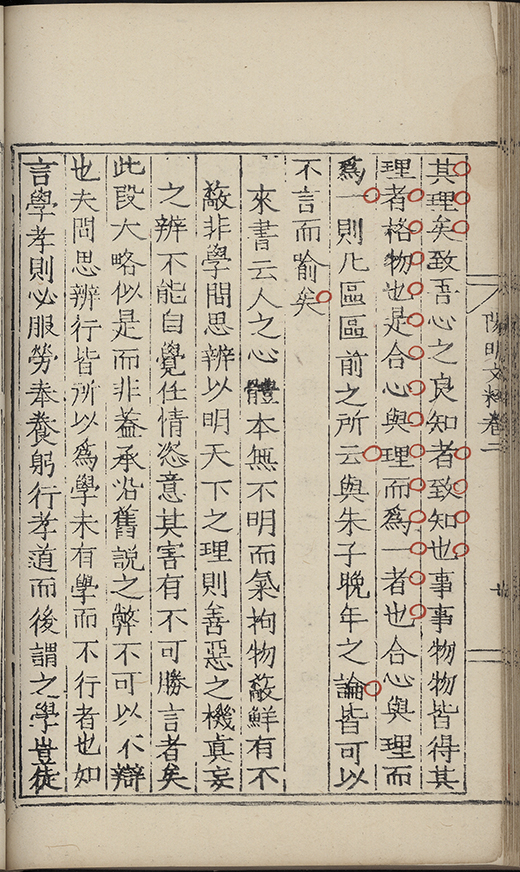 陽明文粹卷二
其理矣致吾心之良知者致知也事事物物皆得其
理者格物也是合心與理而爲一者也合心與理而
爲一則凡區區前之所云與朱子晚年之論皆可以
不言而喻矣
來書云人之心體本無不明而氣拘物蔽鮮有不
蔽非學問思辨以明天下之理則善惡之機真妄
之辨不能自覺任情恣意其害有不可勝言者矣
此段大略似是而非蓋承沿舊說之弊不可以不辯
也夫問思辨行皆所以爲學未有學而不行者也如
言學孝則必服勞奉養躬行孝道而後謂之學豈徒